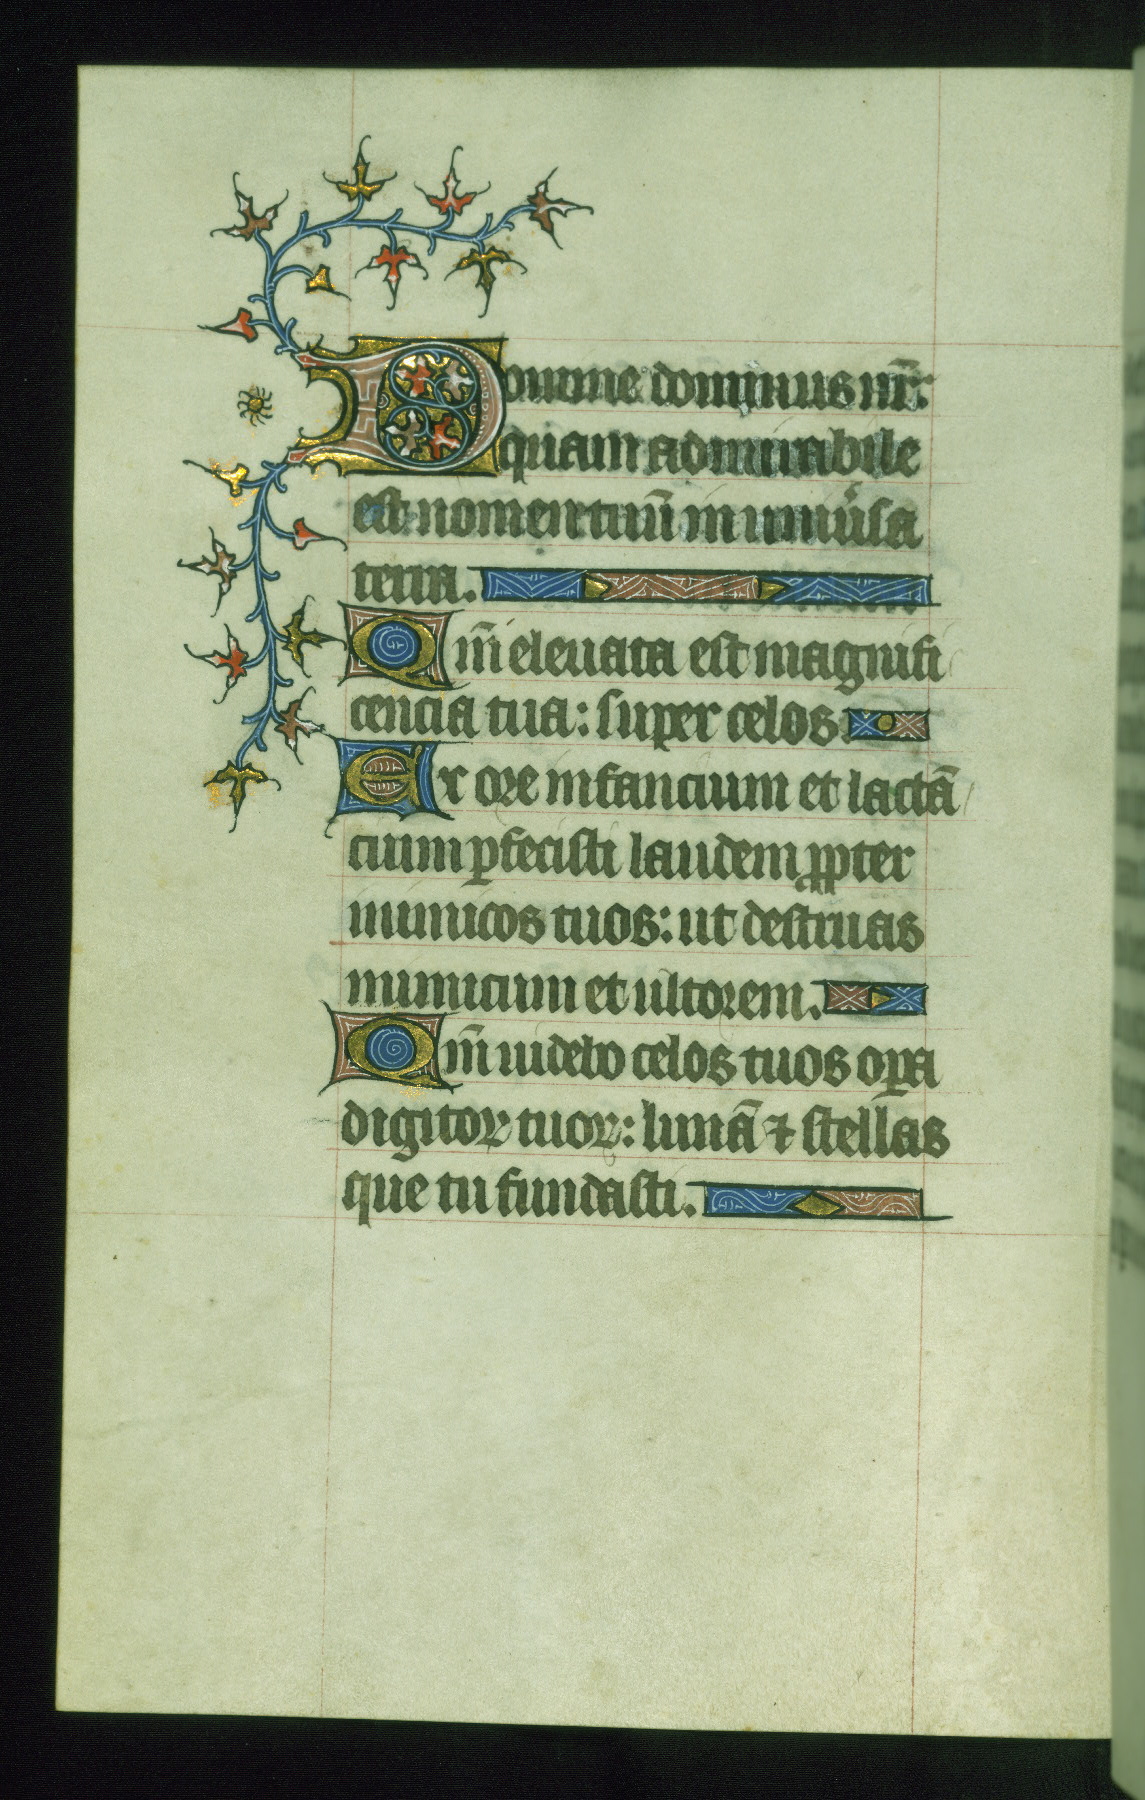 Domine dominus nr̄:
quam admirabile
est nomen tuū in uniūsa
terra.
Qm̄ eleuata est magnifi
cencia tua: super celos.
Ex ore infancium et lactā
cium ꝑfecisti laudem ꝓpter
inimicos tuos: ut destruas
inimicum et ultorem.
Qm̄ uidebo celos tuos oꝑa
digitoꝝ tuoꝝ: lunā ⁊ stellas
que tu fundasti.